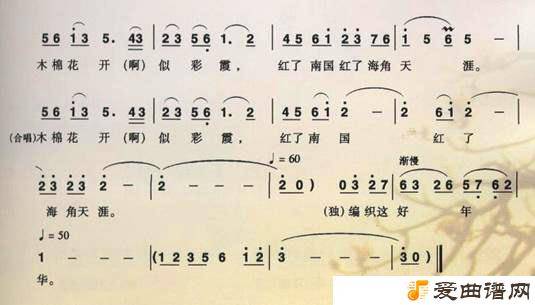 5 6 i 3 5. 4 3 | 2 3 5 6 1. 2 | 4 5 6 1 2 3 7 6 | 1 5 6 5 — |
木棉花 开 (啊) 似 彩 霞， 红了 南国 红了 海角 天 涯。
5 6 i 3 5. 4 3 | 2 3 5 6 1. 2 | 4 5 6 1 2 — | 2 6 1 2 |
(合唱)木棉花 开 (啊) 似 彩 霞， 红了 南 国 红 了
♩= 60 渐慢
2 3 2 3 — — | 2 — — — | 2 0 ) 0 3 2 7 | 6 3 2 6 5 7 6 2 |
海 角天 涯。 (独) 编 织这 好 年
♩= 50
1 — — — | ( 1 2 3 5 6 i 2 | 3 — — — | 3 0 ) ‖
华。
爱曲谱网